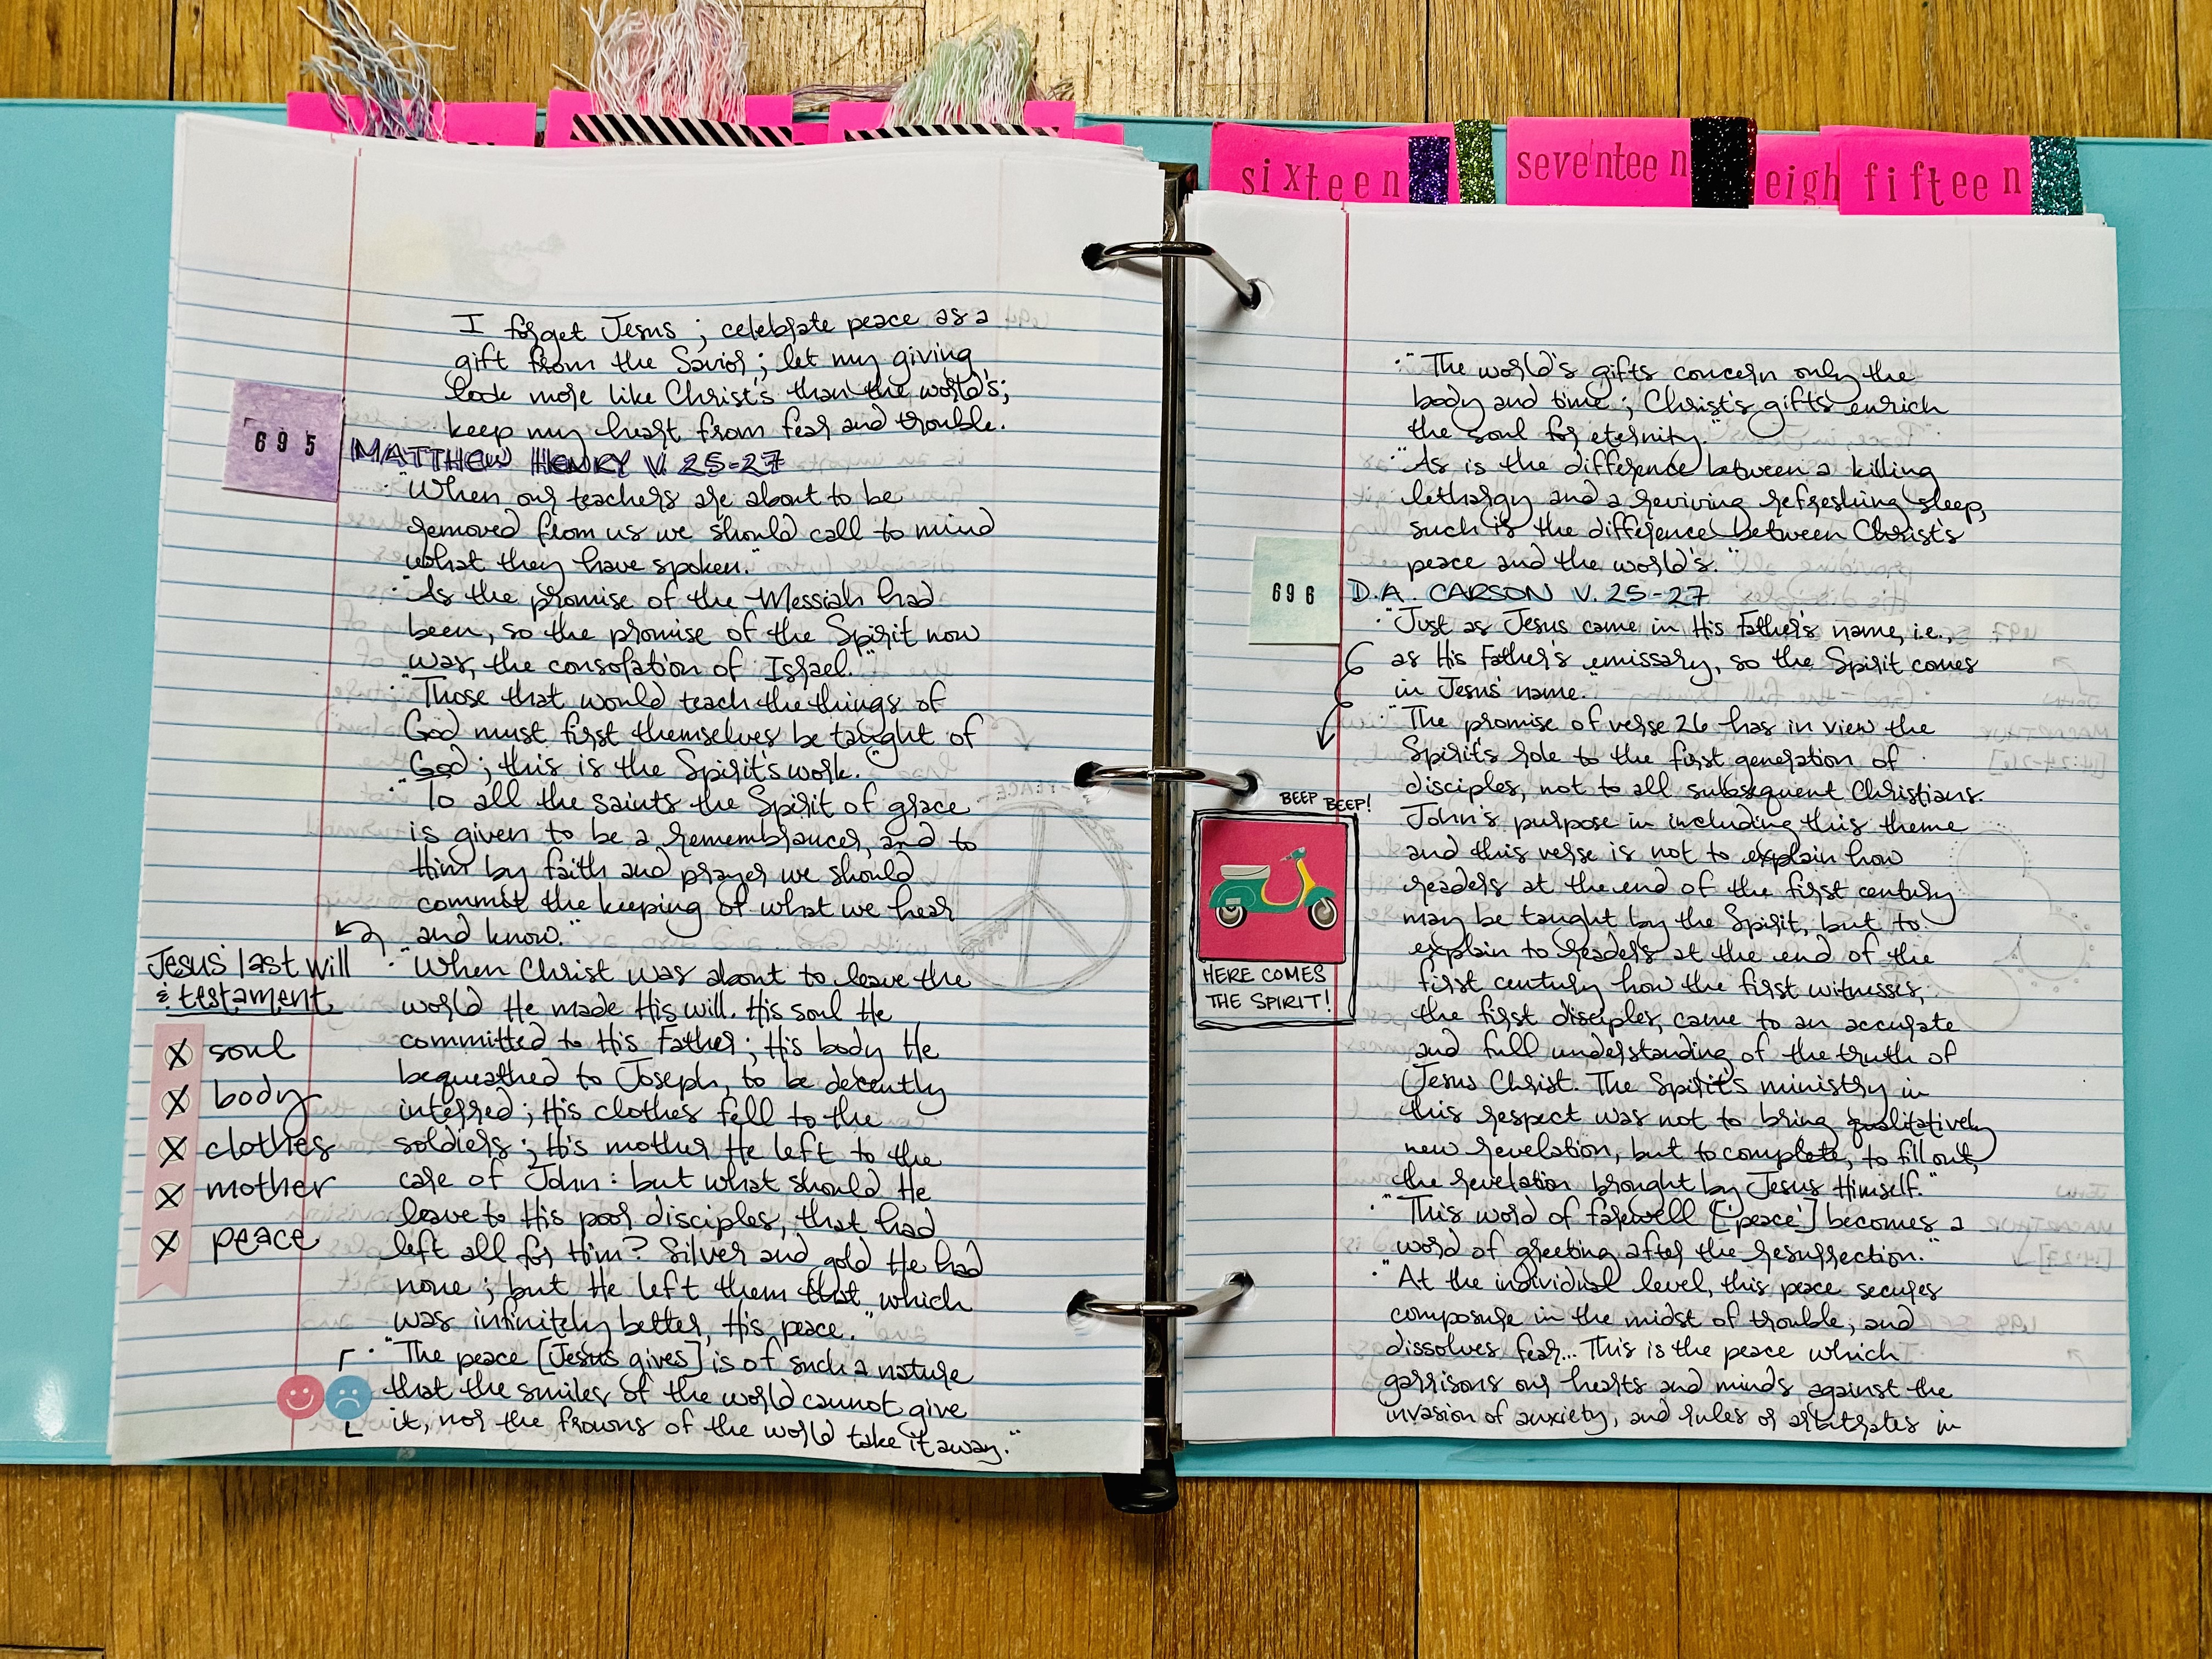 sixteen
seventeen
eigh
fifteen
I forget Jesus ; celebrate peace as a
gift from the Savior ; let my giving
look more like Christ's than the world's;
keep my heart from fear and trouble.
695
MATTHEW HENRY V. 25-27
· "When our teachers are about to be
removed from us we should call to mind
what they have spoken."
· "As the promise of the Messiah had
been, so the promise of the Spirit now
was, the consolation of Israel."
· "Those that would teach the things of
God must first themselves be taught of
God ; this is the Spirit's work."
· "To all the saints the Spirit of grace
is given to be a remembrancer, and to
Him by faith and prayer we should
commit the keeping of what we hear
and know."
· "When Christ was about to leave the
world He made His will. His soul He
committed to His Father ; His body He
bequeathed to Joseph, to be decently
interred ; His clothes fell to the
soldiers ; His mother He left to the
care of John : but what should He
leave to His poor disciples, that had
left all for Him? Silver and gold He had
none ; but He left them that which
was infinitely better, His peace."
· "The peace [Jesus gives] is of such a nature
that the smiles of the world cannot give
it, nor the frowns of the world take it away."
Jesus' last will
& testament
soul
body
clothes
mother
peace
· "The world's gifts concern only the
body and time ; Christ's gifts enrich
the soul for eternity."
· "As is the difference between a killing
lethargy and a reviving refreshing sleep,
such is the difference between Christ's
peace and the world's."
696
D.A. CARSON V. 25-27
· "Just as Jesus came in His Father's name, i.e.,
as His Father's emissary, so the Spirit comes
in Jesus' name."
· "The promise of verse 26 has in view the
Spirit's role to the first generation of
disciples, not to all subsequent Christians.
John's purpose in including this theme
and this verse is not to explain how
readers at the end of the first century
may be taught by the Spirit, but to
explain to readers at the end of the
first century how the first witnesses,
the first disciples, came to an accurate
and full understanding of the truth of
Jesus Christ. The Spirit's ministry in
this respect was not to bring qualitatively
new revelation, but to complete, to fill out,
the revelation brought by Jesus Himself."
· "This word of farewell ['peace'] becomes a
word of greeting after the resurrection."
· "At the individual level, this peace secures
composure in the midst of trouble, and
dissolves fear... This is the peace which
garrisons our hearts and minds against the
invasion of anxiety, and rules or arbitrates in
BEEP BEEP!
HERE COMES
THE SPIRIT!